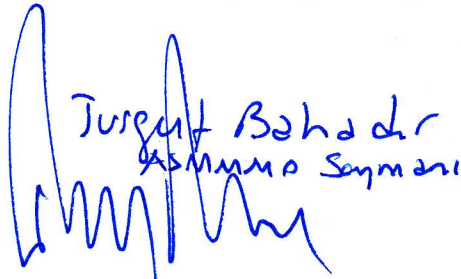 Turgut Bahadır
ASMMMO Saymanı